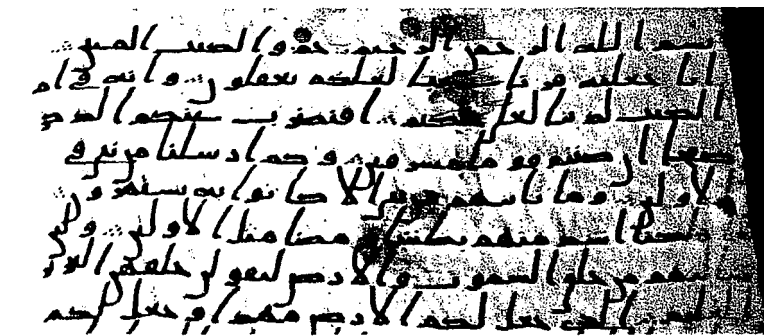 بسم الله الرحمن الرحيم حم والكتب المبين
انا جعلنه قرنا عربيا لعلكم تعقلون وانه في ام
الكتب لدينا لعلي حكيم افنضرب عنكم الذكر
صفحا ان كنتم قوما مسرفين وكم ارسلنا من نبي في
الاولين وما ياتيهم من نبي الا كانوا به يستهزون
فاهلكنا اشد منهم بطشا ومضا مثل الاولين ولين
سالتهم من خلق السموت والارض ليقولن خلقهن العزيز
العليم الذي جعل لكم الارض مهدا وجعل لكم